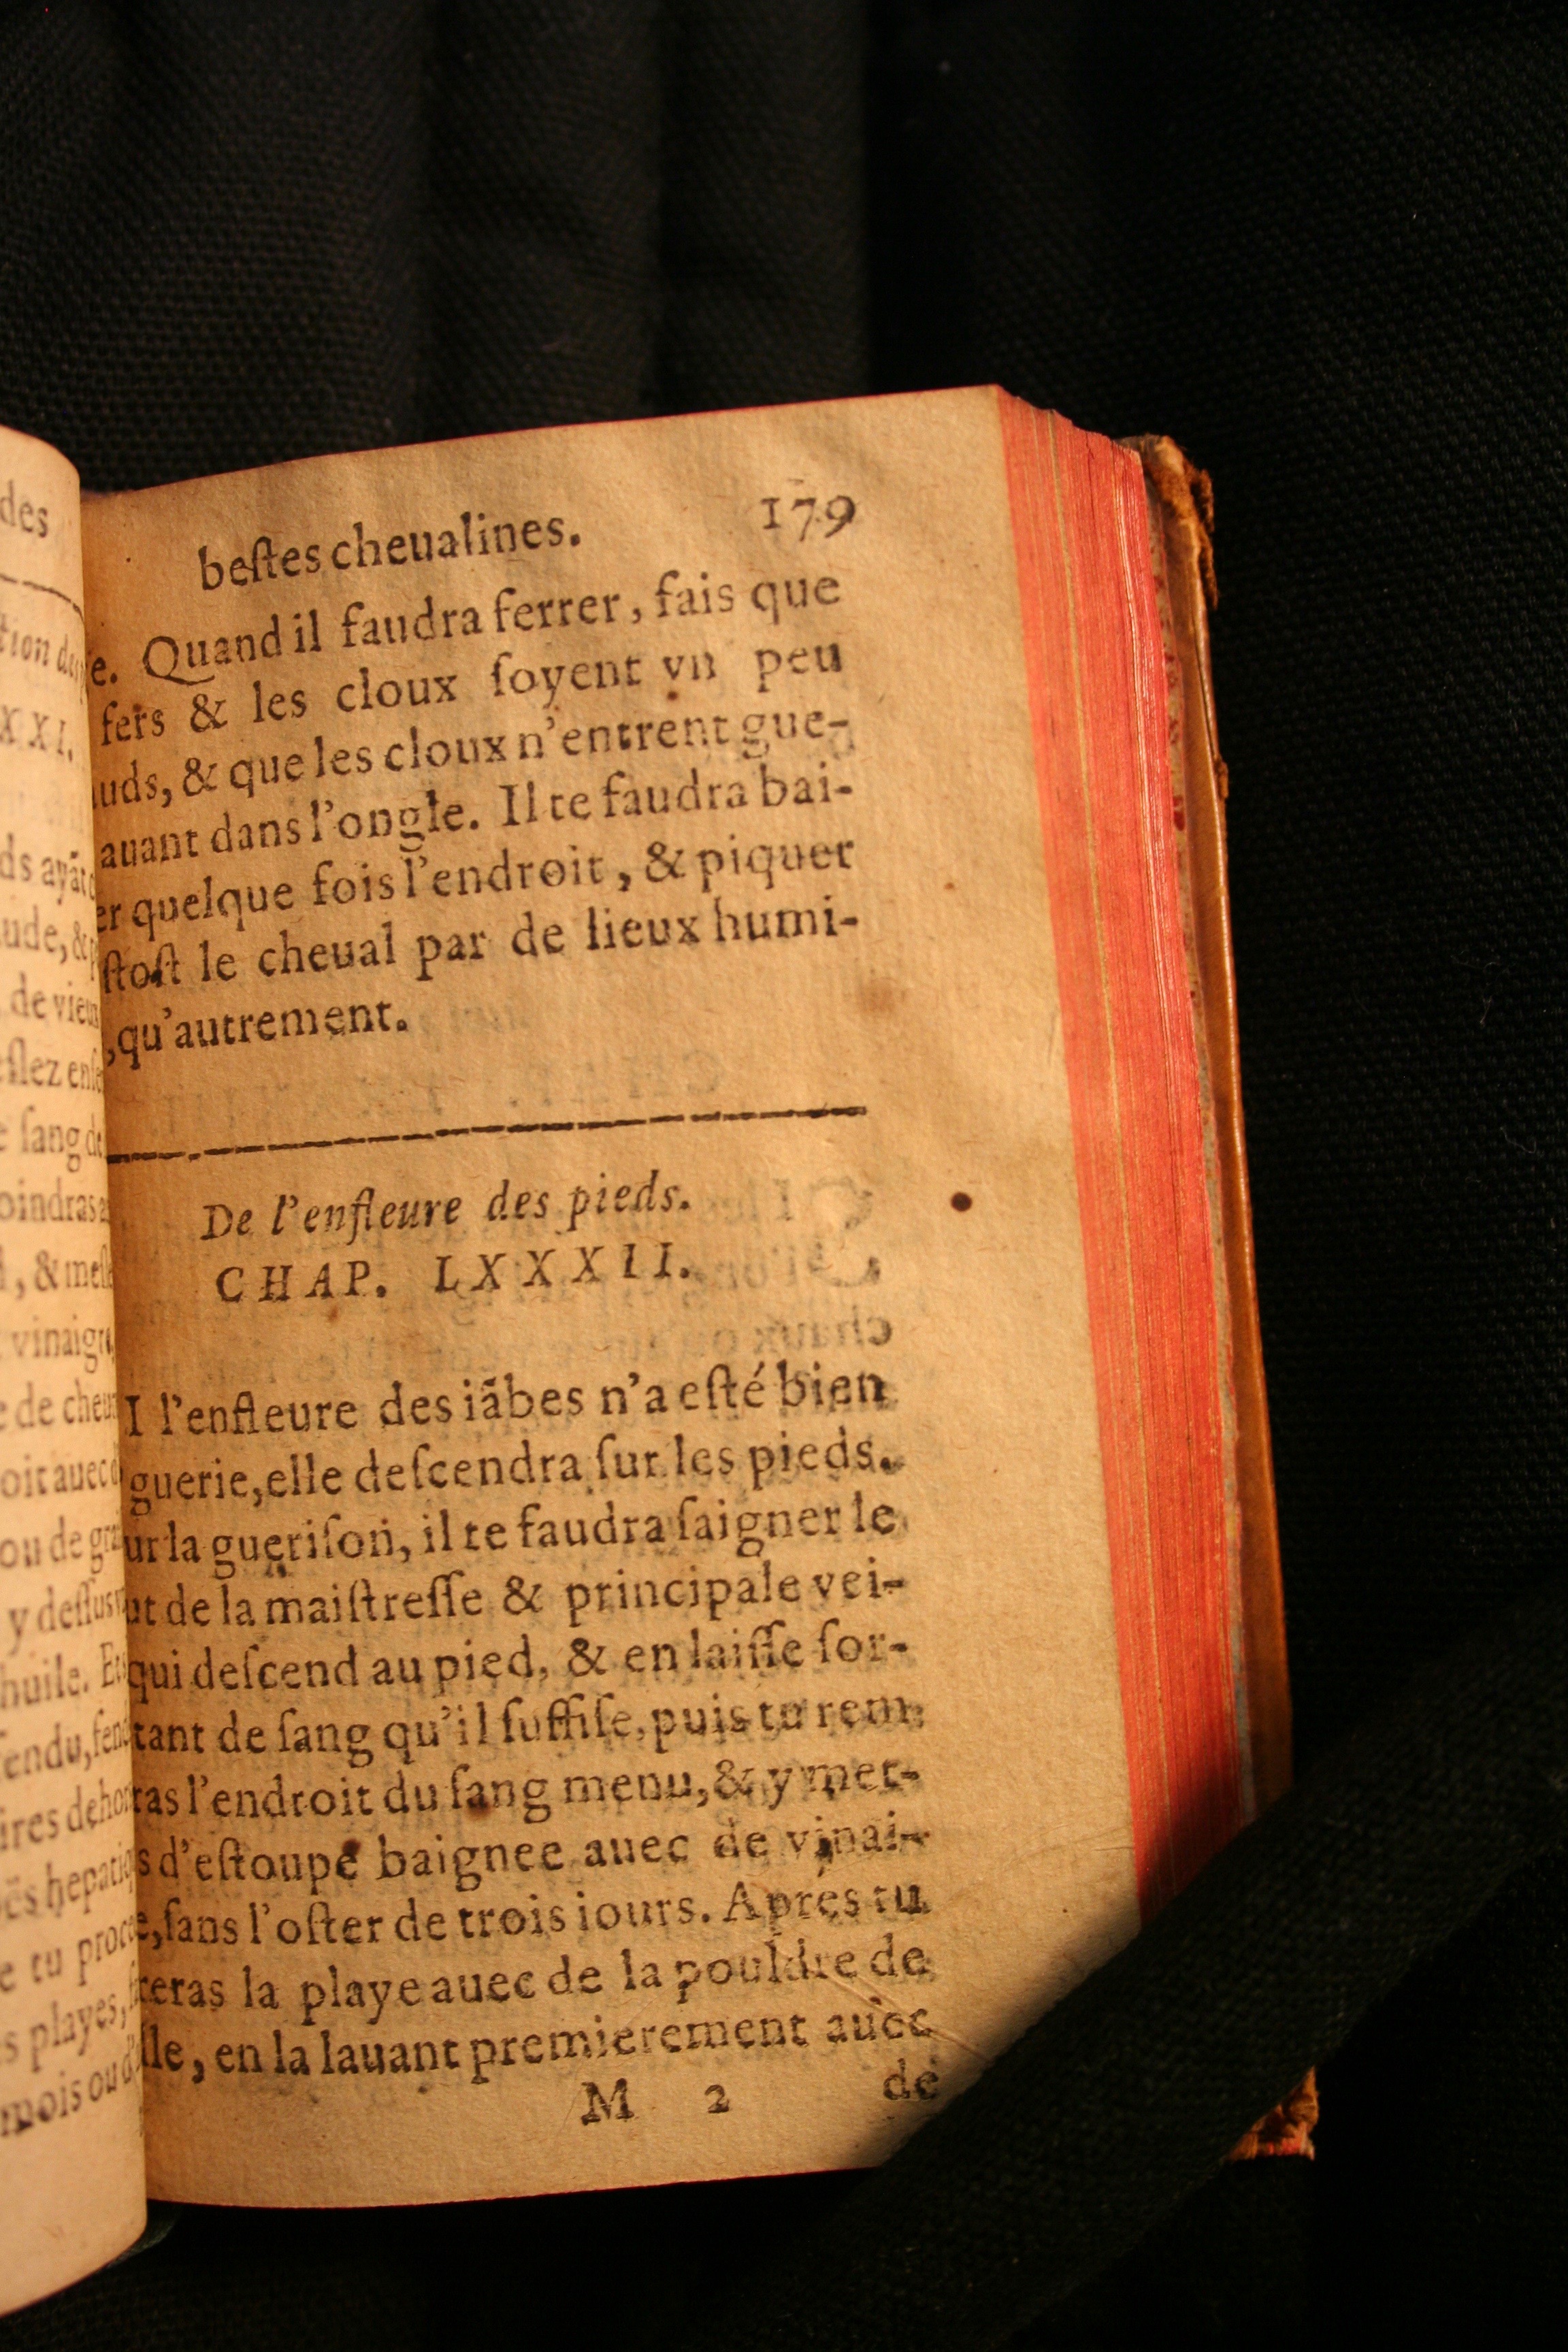 bestes cheualines. 179
e. Quand il faudra ferrer, fais que
fers & les cloux soyent vn peu
uds, & que les cloux n'entrent gue-
auant dans l'ongle. Il te faudra bai-
er quelque fois l'endroit, & piquer
stost le cheual par de lieux humi-
,qu'autrement.
De l'enfleure des pieds.
CHAP. LXXXII.
I l'enfleure des iãbes n'a esté bien
guerie, elle descendra sur les pieds.
ur la guerison, il te faudra saigner le
ut de la maistresse & principale vei-
qui descend au pied, & en laisse sor-
tant de sang qu'il suffise, puis tu rem
ras l'endroit du sang menu, & y met-
s d'estoupe baignee auec de vinai-
e, sans l'oster de trois iours. Aprés tu
teras la playe auec de la pouldre de
lle, en la lauant premierement auec
M 2 de
des
tion de
XXI.
ds ayãt
ude, &
de vieu
slez ens
sang de
oindras
, & mes
vinaigre
de cheu
oit auec
ou de gra
y dessus
huile. E
fendu, fen
ires dehor
hepatiq
e tu proce
s playes,
mois ou d